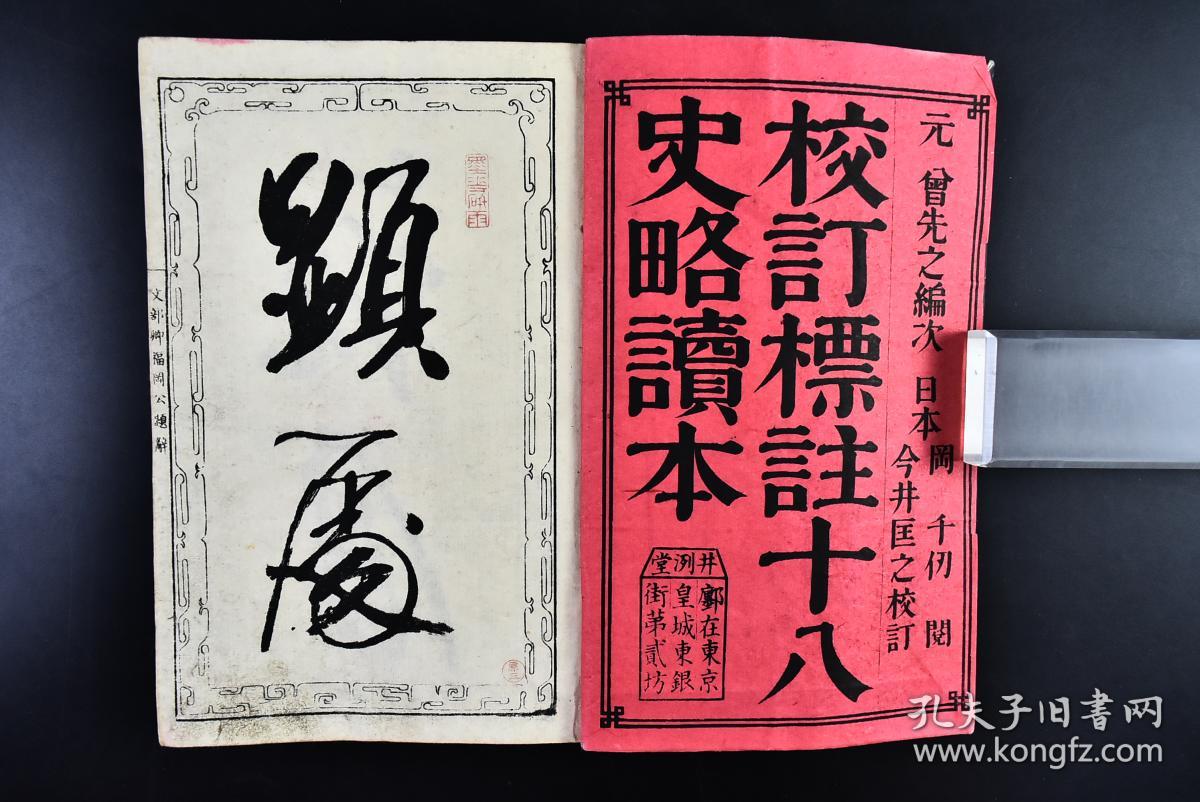 元 曾先之編次 日本 岡 千仞 閲
今井匡之校訂
校訂標註十八
史略讀本
井洌堂
鄽在東京
皇城東銀
街第貳坊
顕
文部卿福岡公題辭
孔夫子旧書网
www.kongfz.com